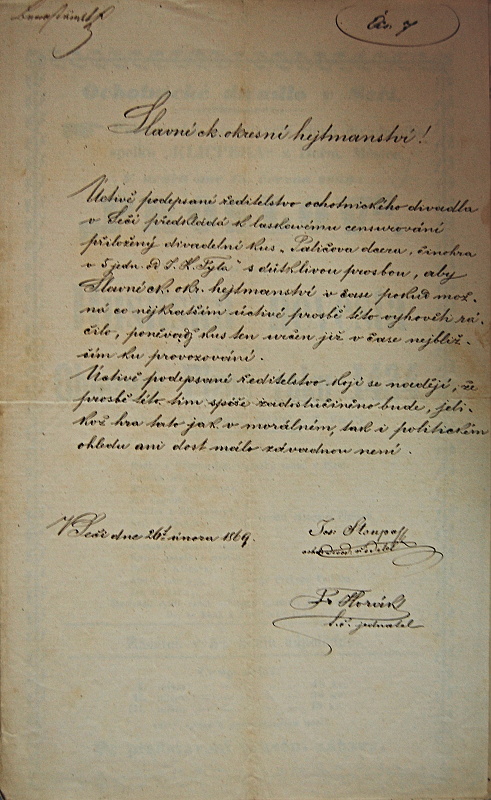 Čís. 7
Slavné ck. okresní hejtmanství!
Uctivě podepsané ředitelstvo ochotnického divadla
v Seči předkládá k laskavému censurování
přiložený divadelní kus "Paličova dcera, činohra
v 5 jedn. od J. K. Tyla" s důtklivou prosbou, aby
Slavné ck. okr. hejtmanství v čase pokud mož-
ná co nejkratším uctivé prosbě této vyhověti rá-
čilo, poněvadž kus ten určen již v čase nejbliž-
ším ku provozování.
Uctivě podepsané ředitelstvo kojí se nadějí, že
prosbě této tím spíše zadistučiněno bude, jeli-
kož hra tato jak v morálném, tak i politickém
ohledu ani dost málo závadnou není.
V Seči dne 26. února 1869.
Jos. Stoupa
ředitel
Fr Horák
t. č. jednatel